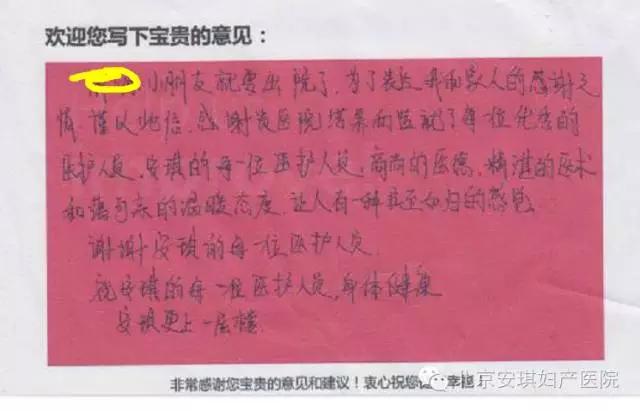 欢迎您写下宝贵的意见：
小朋友就要出院了，为了表达我和家人的感谢之
情，谨以此信，感谢贵医院培养和造就了每位优秀的
医护人员，安琪的每一位医护人员，高尚的医德，精湛的医术
和的温暖态度，让人有一种宾至如归的感觉
谢谢安琪的每一位医护人员
祝安琪的每一位医护人员，身体健康
安琪更上一层楼
非常感谢您宝贵的意见和建议！衷心祝您幸福！
北京安琪妇产医院